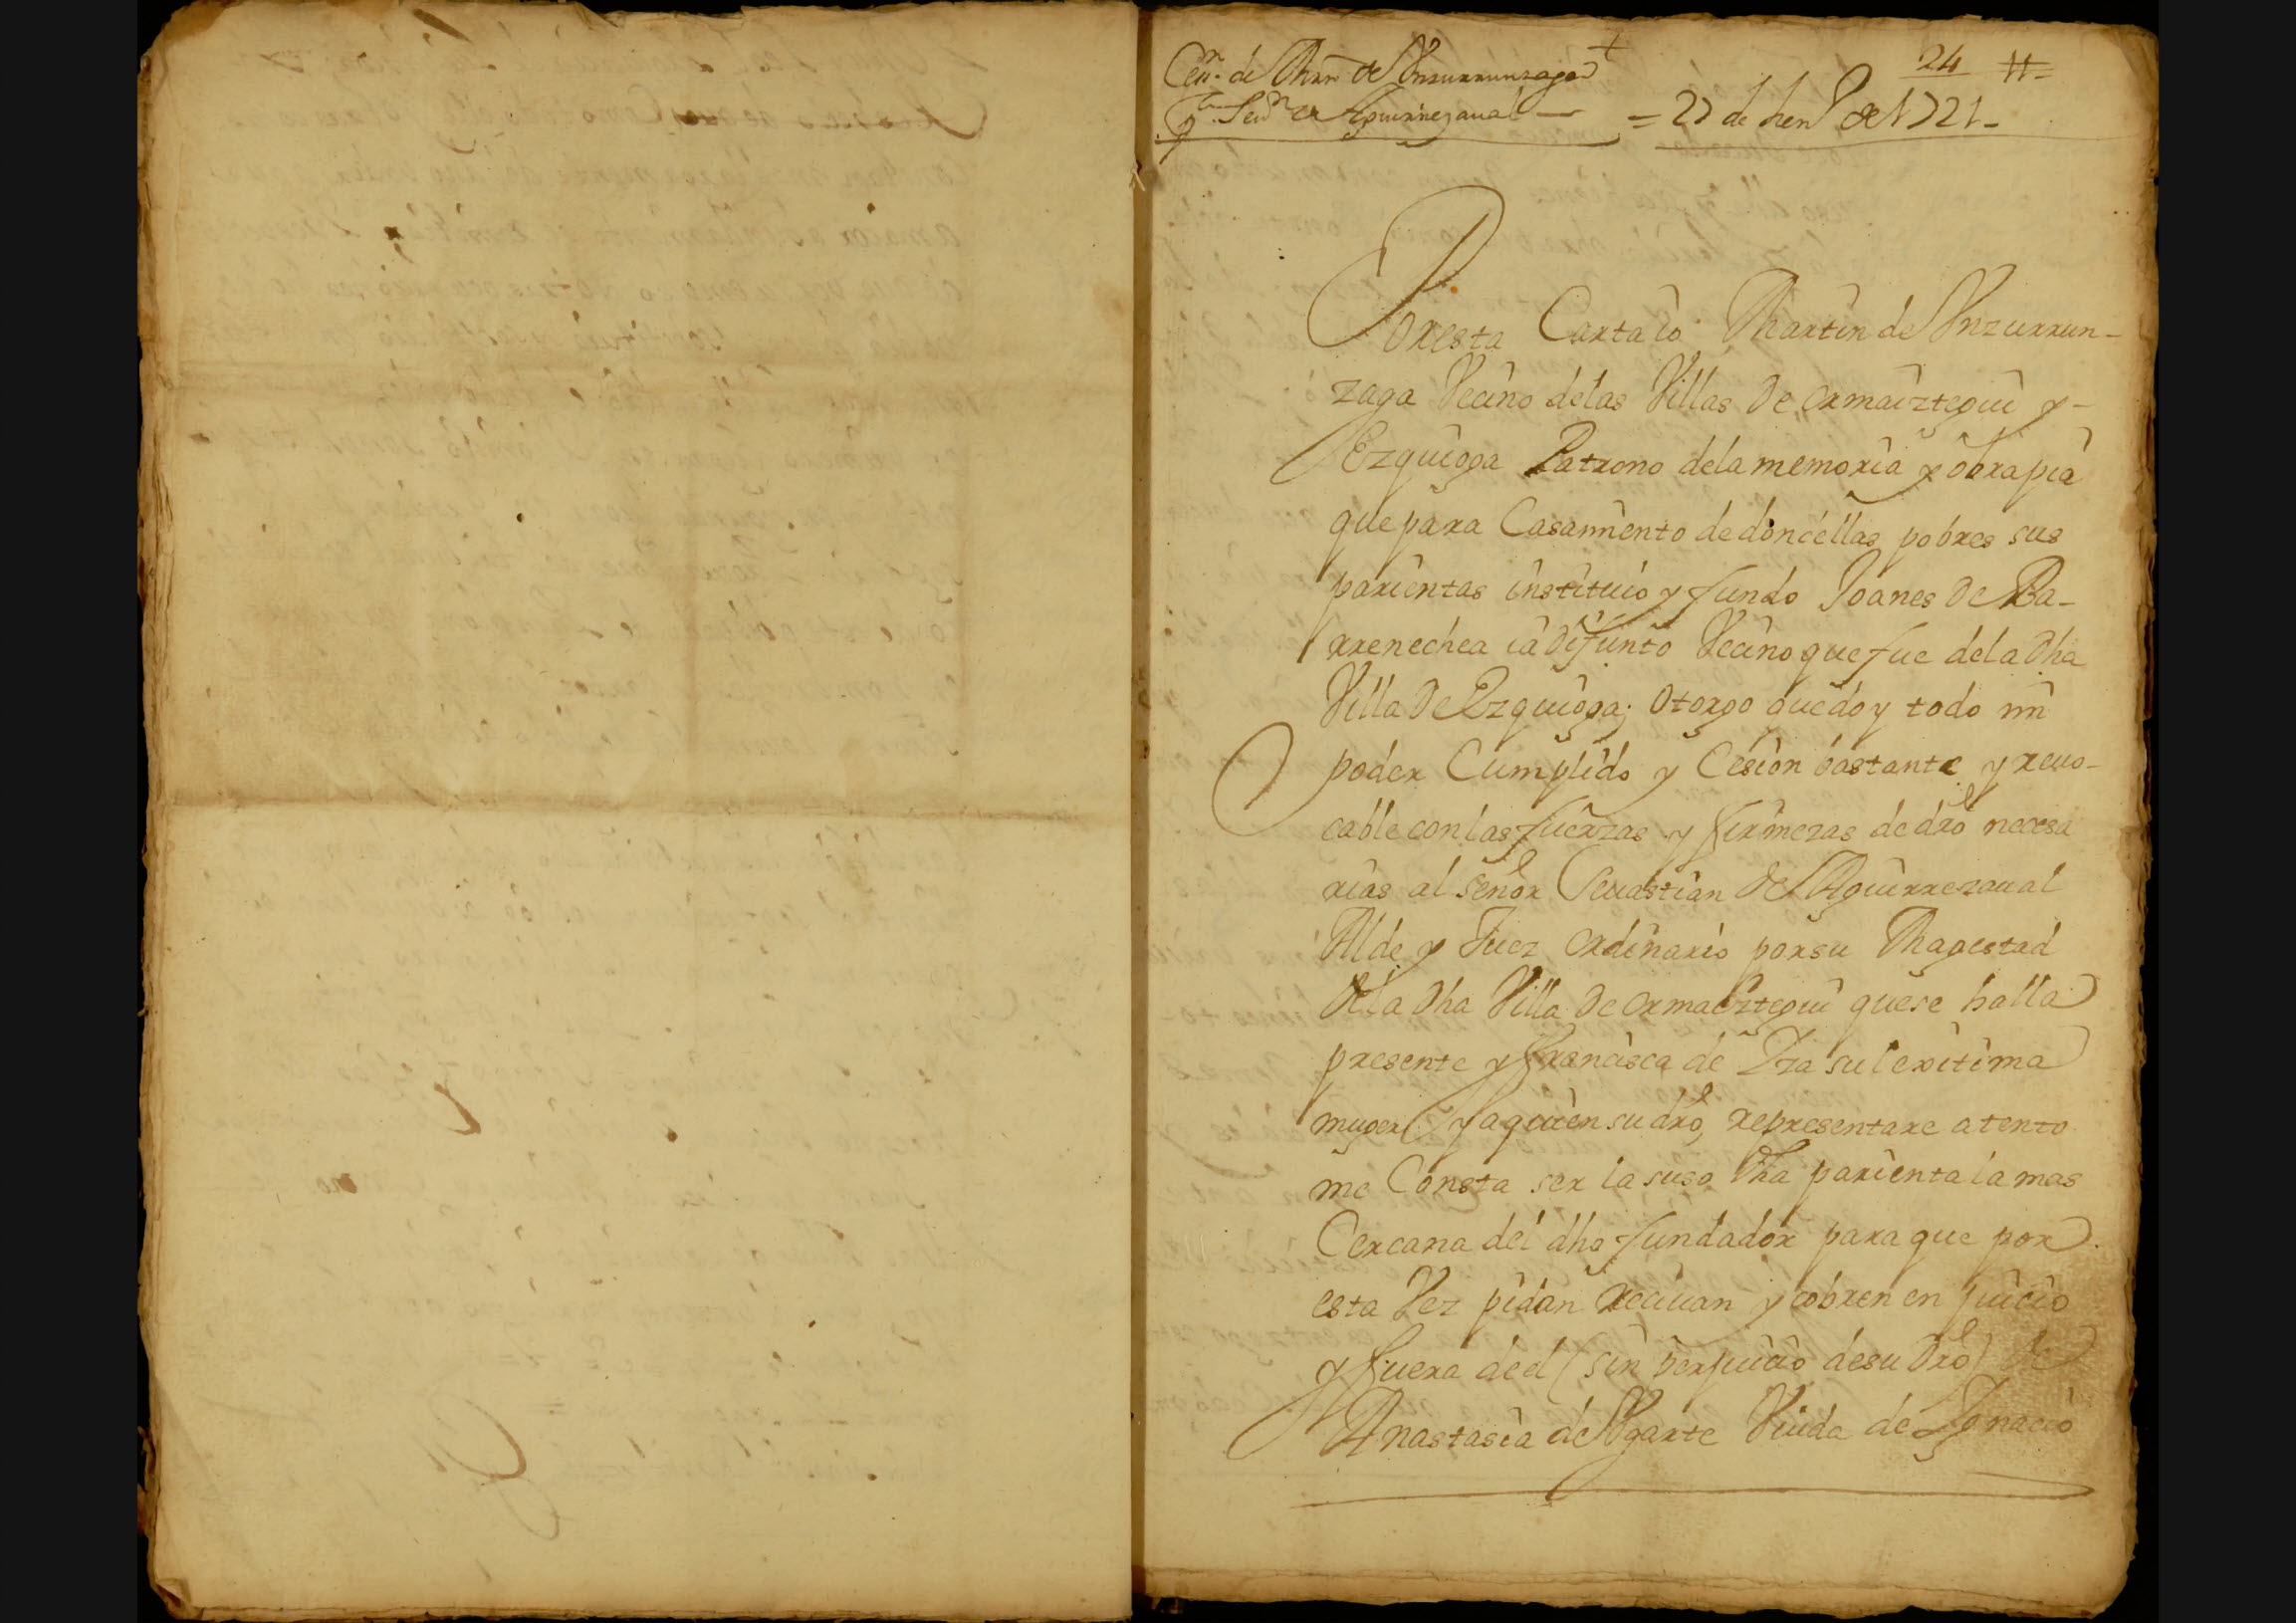 Cen. de Mrn de Vnzurrunzaga
pa Seun de Aguirrezaual — = 27 de hen° de 1721 –
24
Por esta Carta io Martin de Vnzurrun-
zaga Vecino delas Villas de ormaiztegui y -
Ezquioga Patrono dela memoria y obra pia
que para Casamiento de doncellas pobres sus
parientas instituio y fundo Joanes de Ba-
rrenechea ia difunto Vecino que fue dela dha
Villa de Ezquioga; otorgo que doy todo mi
poder Cumplido y Cesion bastante yreuo-
cable con las fuerzas y firmezas de dro necesa
rias al señor Seuastian de Aguirrezaual
Allde y Juez ordinario por su Magestad
dela dha Villa de ormaiztegui que se halla
presente y francisca de Yza su lexitima
muger y a quien su dro representare atento
me Consta ser la suso dha parienta la mas
Cercana del dho fundador para que por
esta Vez pidan reciuan y cobren en juicio
y fuera de el (sin perjuicio de su dro) de
Anastasia de Vgarte Viuda de Ignacio